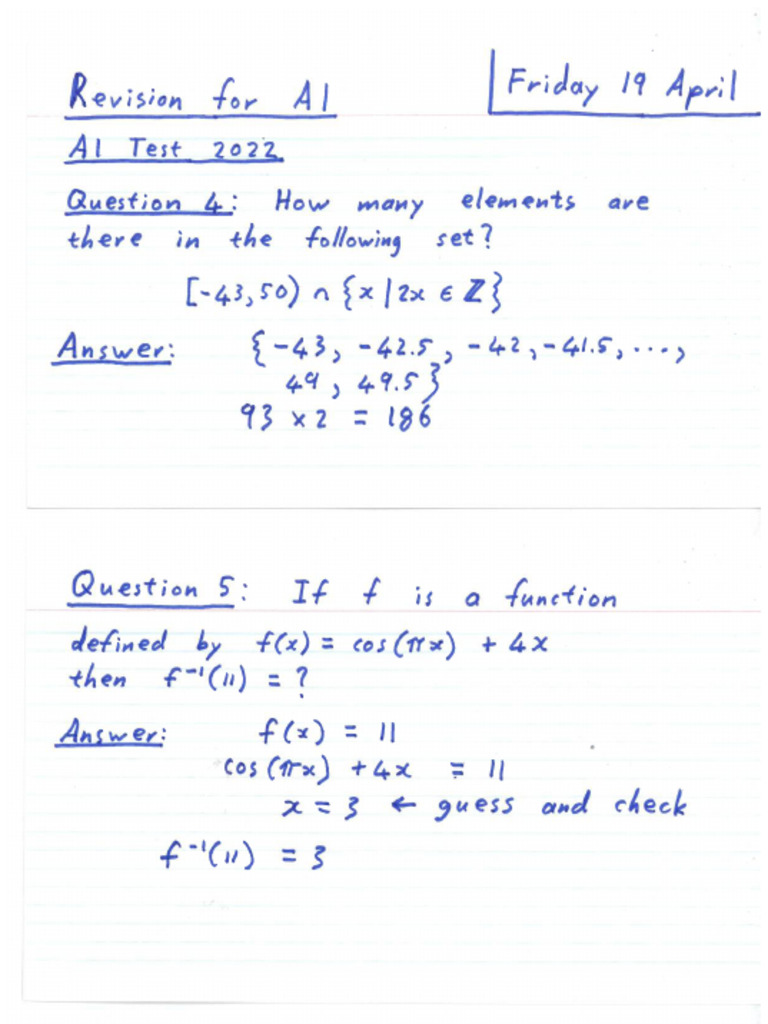 Friday 19 April
Revision for A1
A1 Test 2022
Question 4: How many elements are
there in the following set?
[-43,50) ∩ {x | 2x ∈ ℤ}
Answer: {-43, -42.5, -42, -41.5, ...,
49, 49.5}
93 × 2 = 186
Question 5: If f is a function
defined by f(x) = cos(πx) + 4x
then f⁻¹(11) = ?
Answer: f(x) = 11
cos(πx) + 4x = 11
x = 3 ← guess and check
f⁻¹(11) = 3